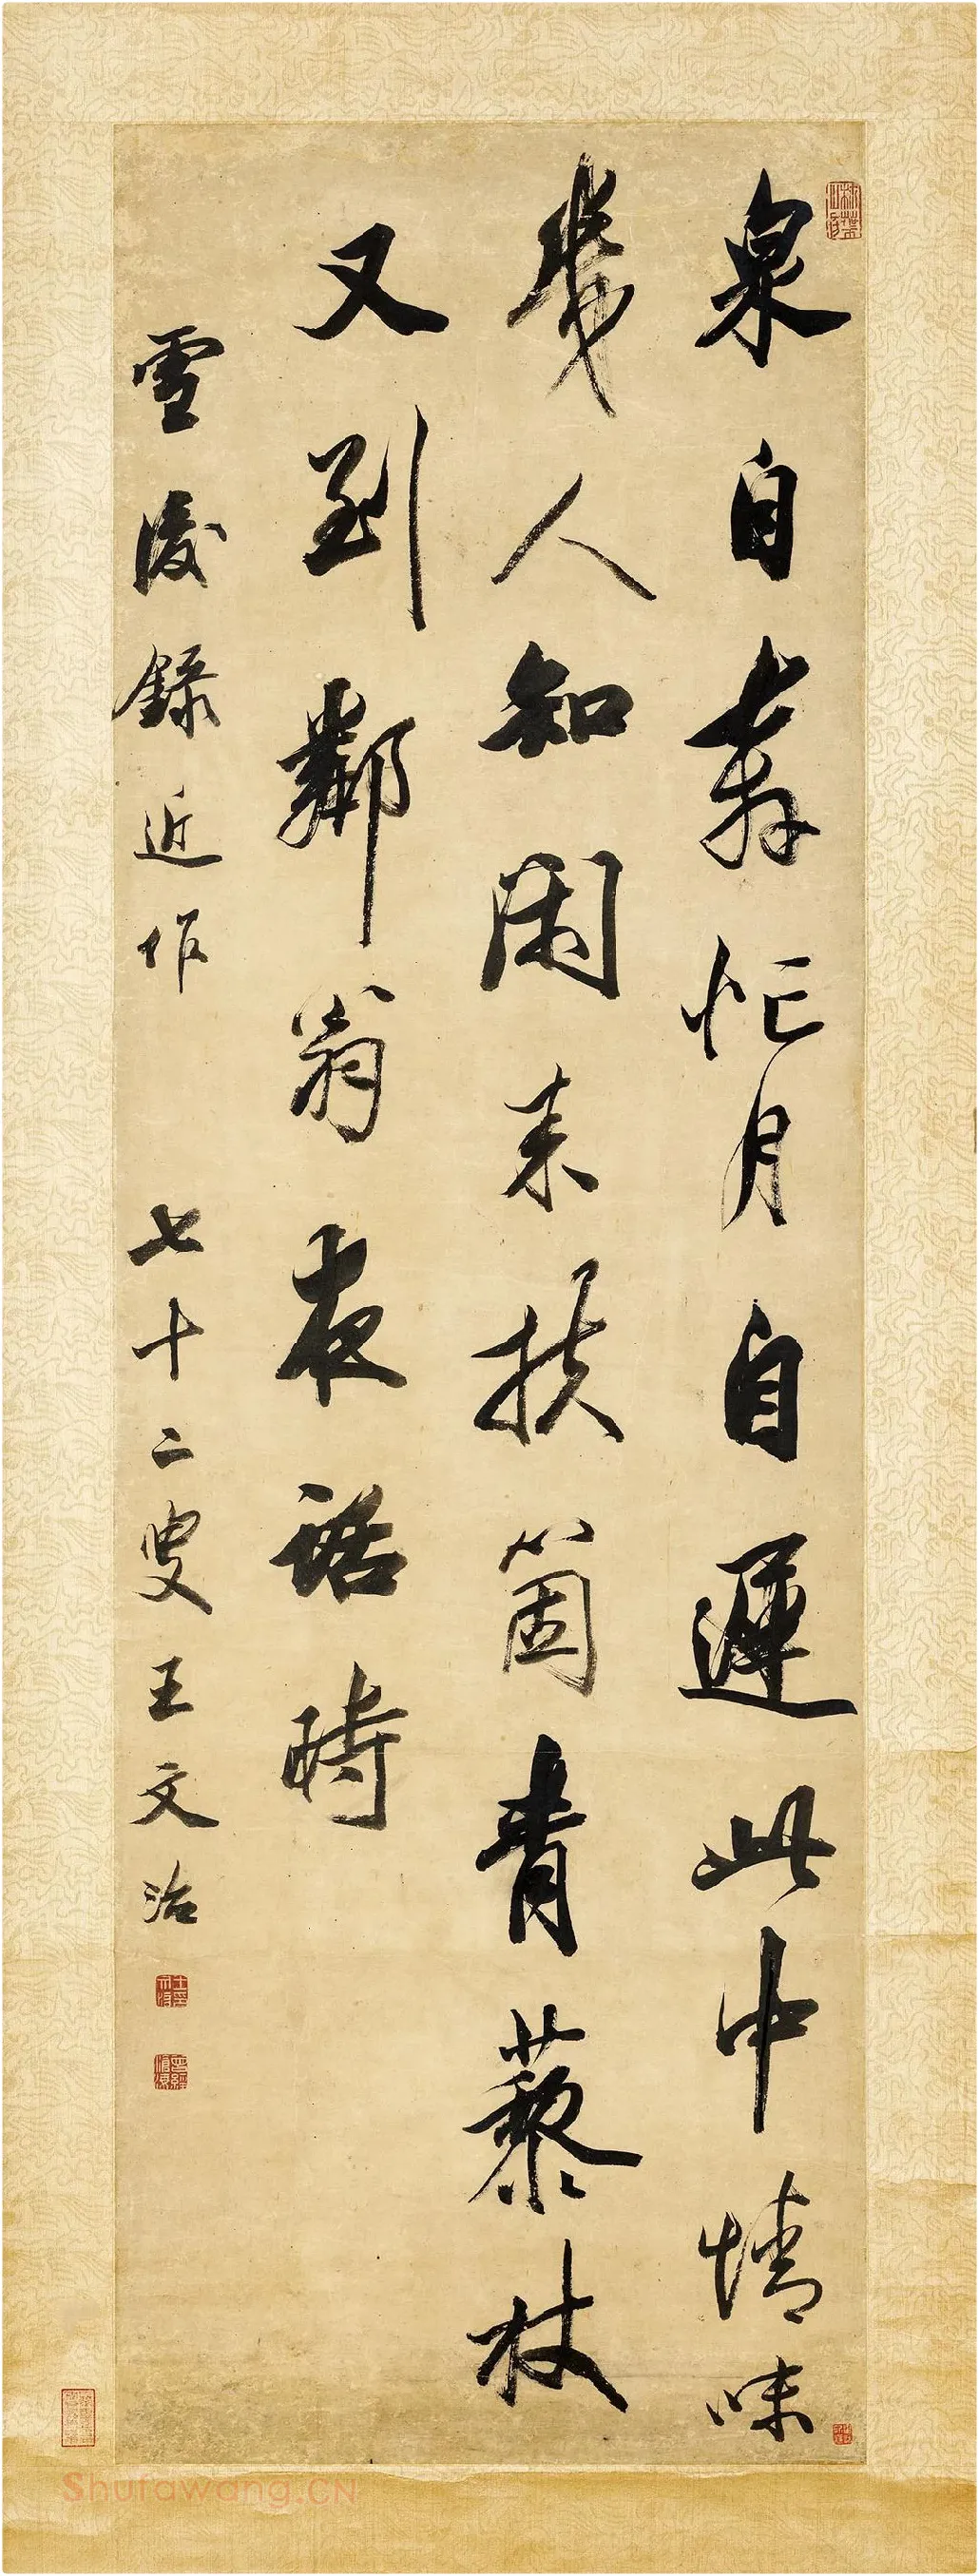 泉自奔忙月自遲此中情味
幾人知閑來扶箇青藜杖
又到鄰翁夜話時
雪後錄近作 七十二叟王文治
曾經滄海
Shufawang.CN